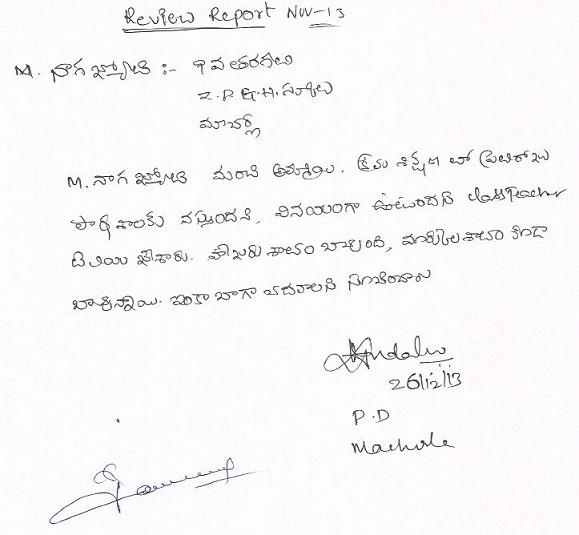 Review Report Nov-13
M. నాగ జ్యోతి :- 9 వ తరగతి
Z.P.G.H. స్కూలు
మాచర్ల
M. నాగ జ్యోతి మంచి అమ్మాయి. క్రమ శిక్షణ తో ప్రతిరోజు
పాఠశాలకు వస్తుందని, వినయంగా ఉంటుందని class Teacher
తెలియ చేశారు. హాజరు శాతం బాగుంది, మార్కుల శాతం కూడా
బాగున్నాయి. ఇంకా బాగా చదవాలని సూచించారు
26/12/13
P.D
Macherla